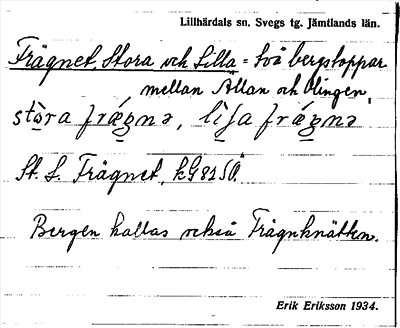 Lillhärdals sn. Svegs tg. Jämtlands län.
Frägnet, Stora och Lilla = två bergstoppar
mellan Allan och Olingen.
stò̱ra frǽ̱gnə, lì̱ſa frǽ̱gnə
St. L. Frägnet, k G 81 SO.
Bergen kallas också Frägnknätten.
Erik Eriksson 1934.